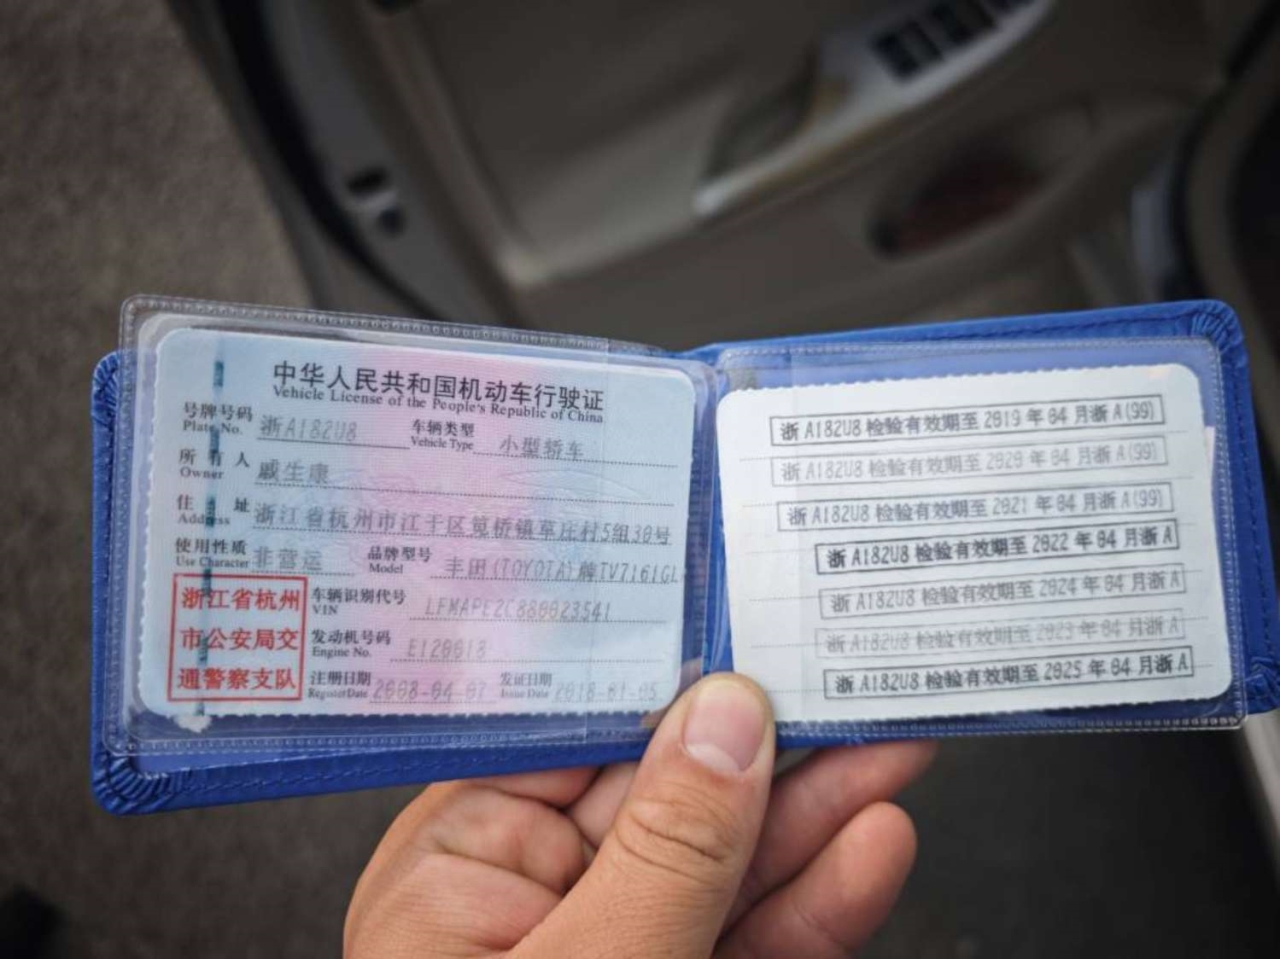 中华人民共和国机动车行驶证
Vehicle License of the People's Republic of China
号牌号码 浙A182U8 车辆类型 小型轿车
Plate No. Vehicle Type
所有人 戚生康
Owner
住址 浙江省杭州市江干区笕桥镇草庄村5组30号
Address
使用性质 非营运 品牌型号 丰田(TOYOTA)牌TV7161GL
Use Character Model
浙江省杭州
市公安局交
通警察支队
车辆识别代号 LFMAPE2C880023541
VIN
发动机号码
Engine No.
注册日期 2008-04-07 发证日期 2018-01-05
Register Date Issue Date
浙 A182U8 检验有效期至 2019 年 04 月浙 A(99)
浙 A182U8 检验有效期至 2020 年 04 月浙 A(99)
浙 A182U8 检验有效期至 2021 年 04 月浙 A(99)
浙 A182U8 检验有效期至 2022 年 04 月浙 A
浙 A182U8 检验有效期至 2024 年 04 月浙 A
浙 A182U8 检验有效期至 2023 年 04 月浙 A
浙 A182U8 检验有效期至 2025 年 04 月浙 A